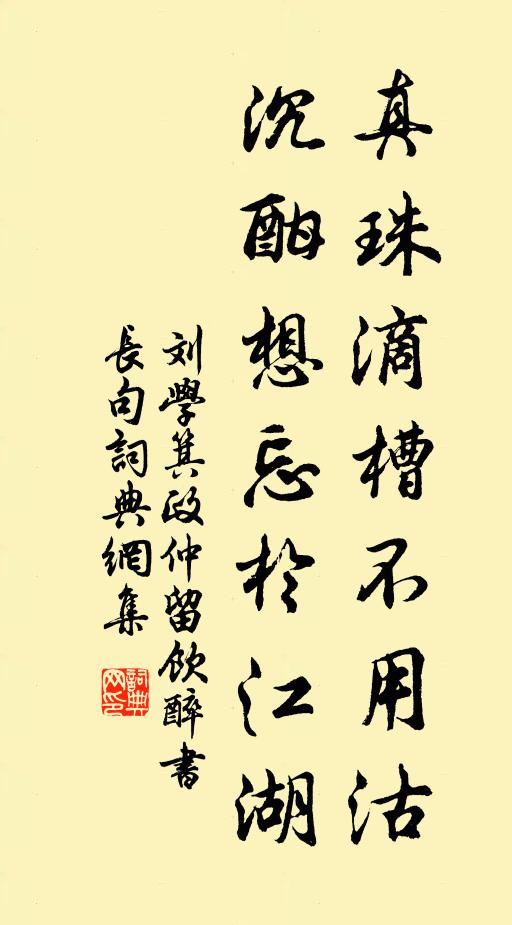 真珠滴槽不用沽
沉酣想忘於江湖
刘學箕政仲留飲醉書
長句詞典網集
詞典网印